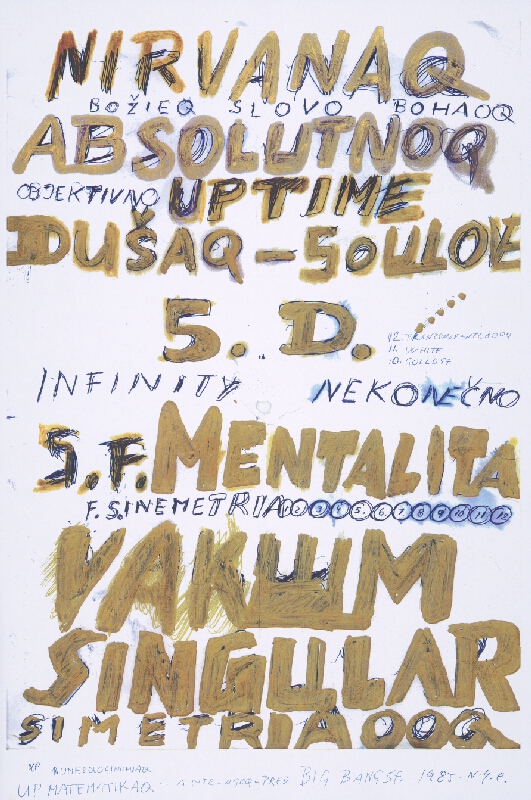 NIRVANAQ
BOŽIEQ SLOVO BOHAOQ
ABSOLUTNOQ
OBJEKTIVNO UPTIME
DUŠAQ - SOULOVE
5. D.
12.
11. WHITE
10.
INFINITY NEKONEČNO
S.F. MENTALITA
F. SINEMETRIA 1 2 3 4 5 6 7 8 9 10 11 12
VAKUUM
SINGULAR
SIMETRIA OOQ
XP
UP MATEMATIKAQ. BIG BANGSF 1985. N.Y.P.